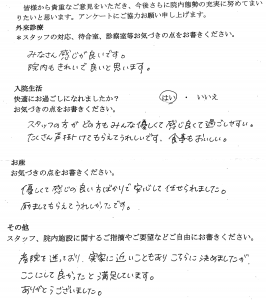 皆様から貴重なご意見をいただき、今後さらに院内態勢の充実に努めてまい
りたいと思います。アンケートにご協力お願い申し上げます。
外来診療
*スタッフの対応、待合室、診察室等お気づきの点をお書きください。
みなさん感じが良いです。
院内もきれいで良いと思います。
入院生活
快適にお過ごしになれましたか? はい ・ いいえ
お気づきの点をお書きください。
スタッフの方がどの方もみんな優しくて感じ良くて過ごしやすい。
たくさん声をかけてもらえてうれしいです。食事もおいしい。
お産
お気づきの点をお書きください。
優しくて感じの良い方ばかりで安心して任せられました。
励ましてもらえてうれしかったです。
その他
スタッフ、院内施設に関するご指摘やご要望などご自由にお書きください。
産院を迷っており、実家に近いこともありこちらに決めましたが
ここにして良かったと満足しています。
ありがとうございました。